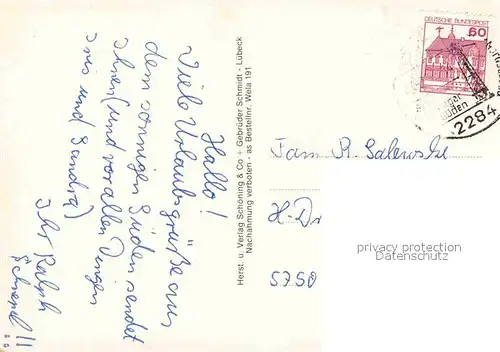 Hallo!
Viele Urlaubsgrüße aus
dem sonnigen Süden sendet
Ihnen (und vor allen Dingen
Ines und Sandra)
Ihr Ralph
!!
Herst. u. Verlag Schöning & Co + Gebrüder Schmidt - Lübeck
Nachahmung verboten - as Bestellnr. Wela 191
DEUTSCHE BUNDESPOST
60
2284
Fam R. Salewski
H-Dr
5750
privacy protection
Datenschutz